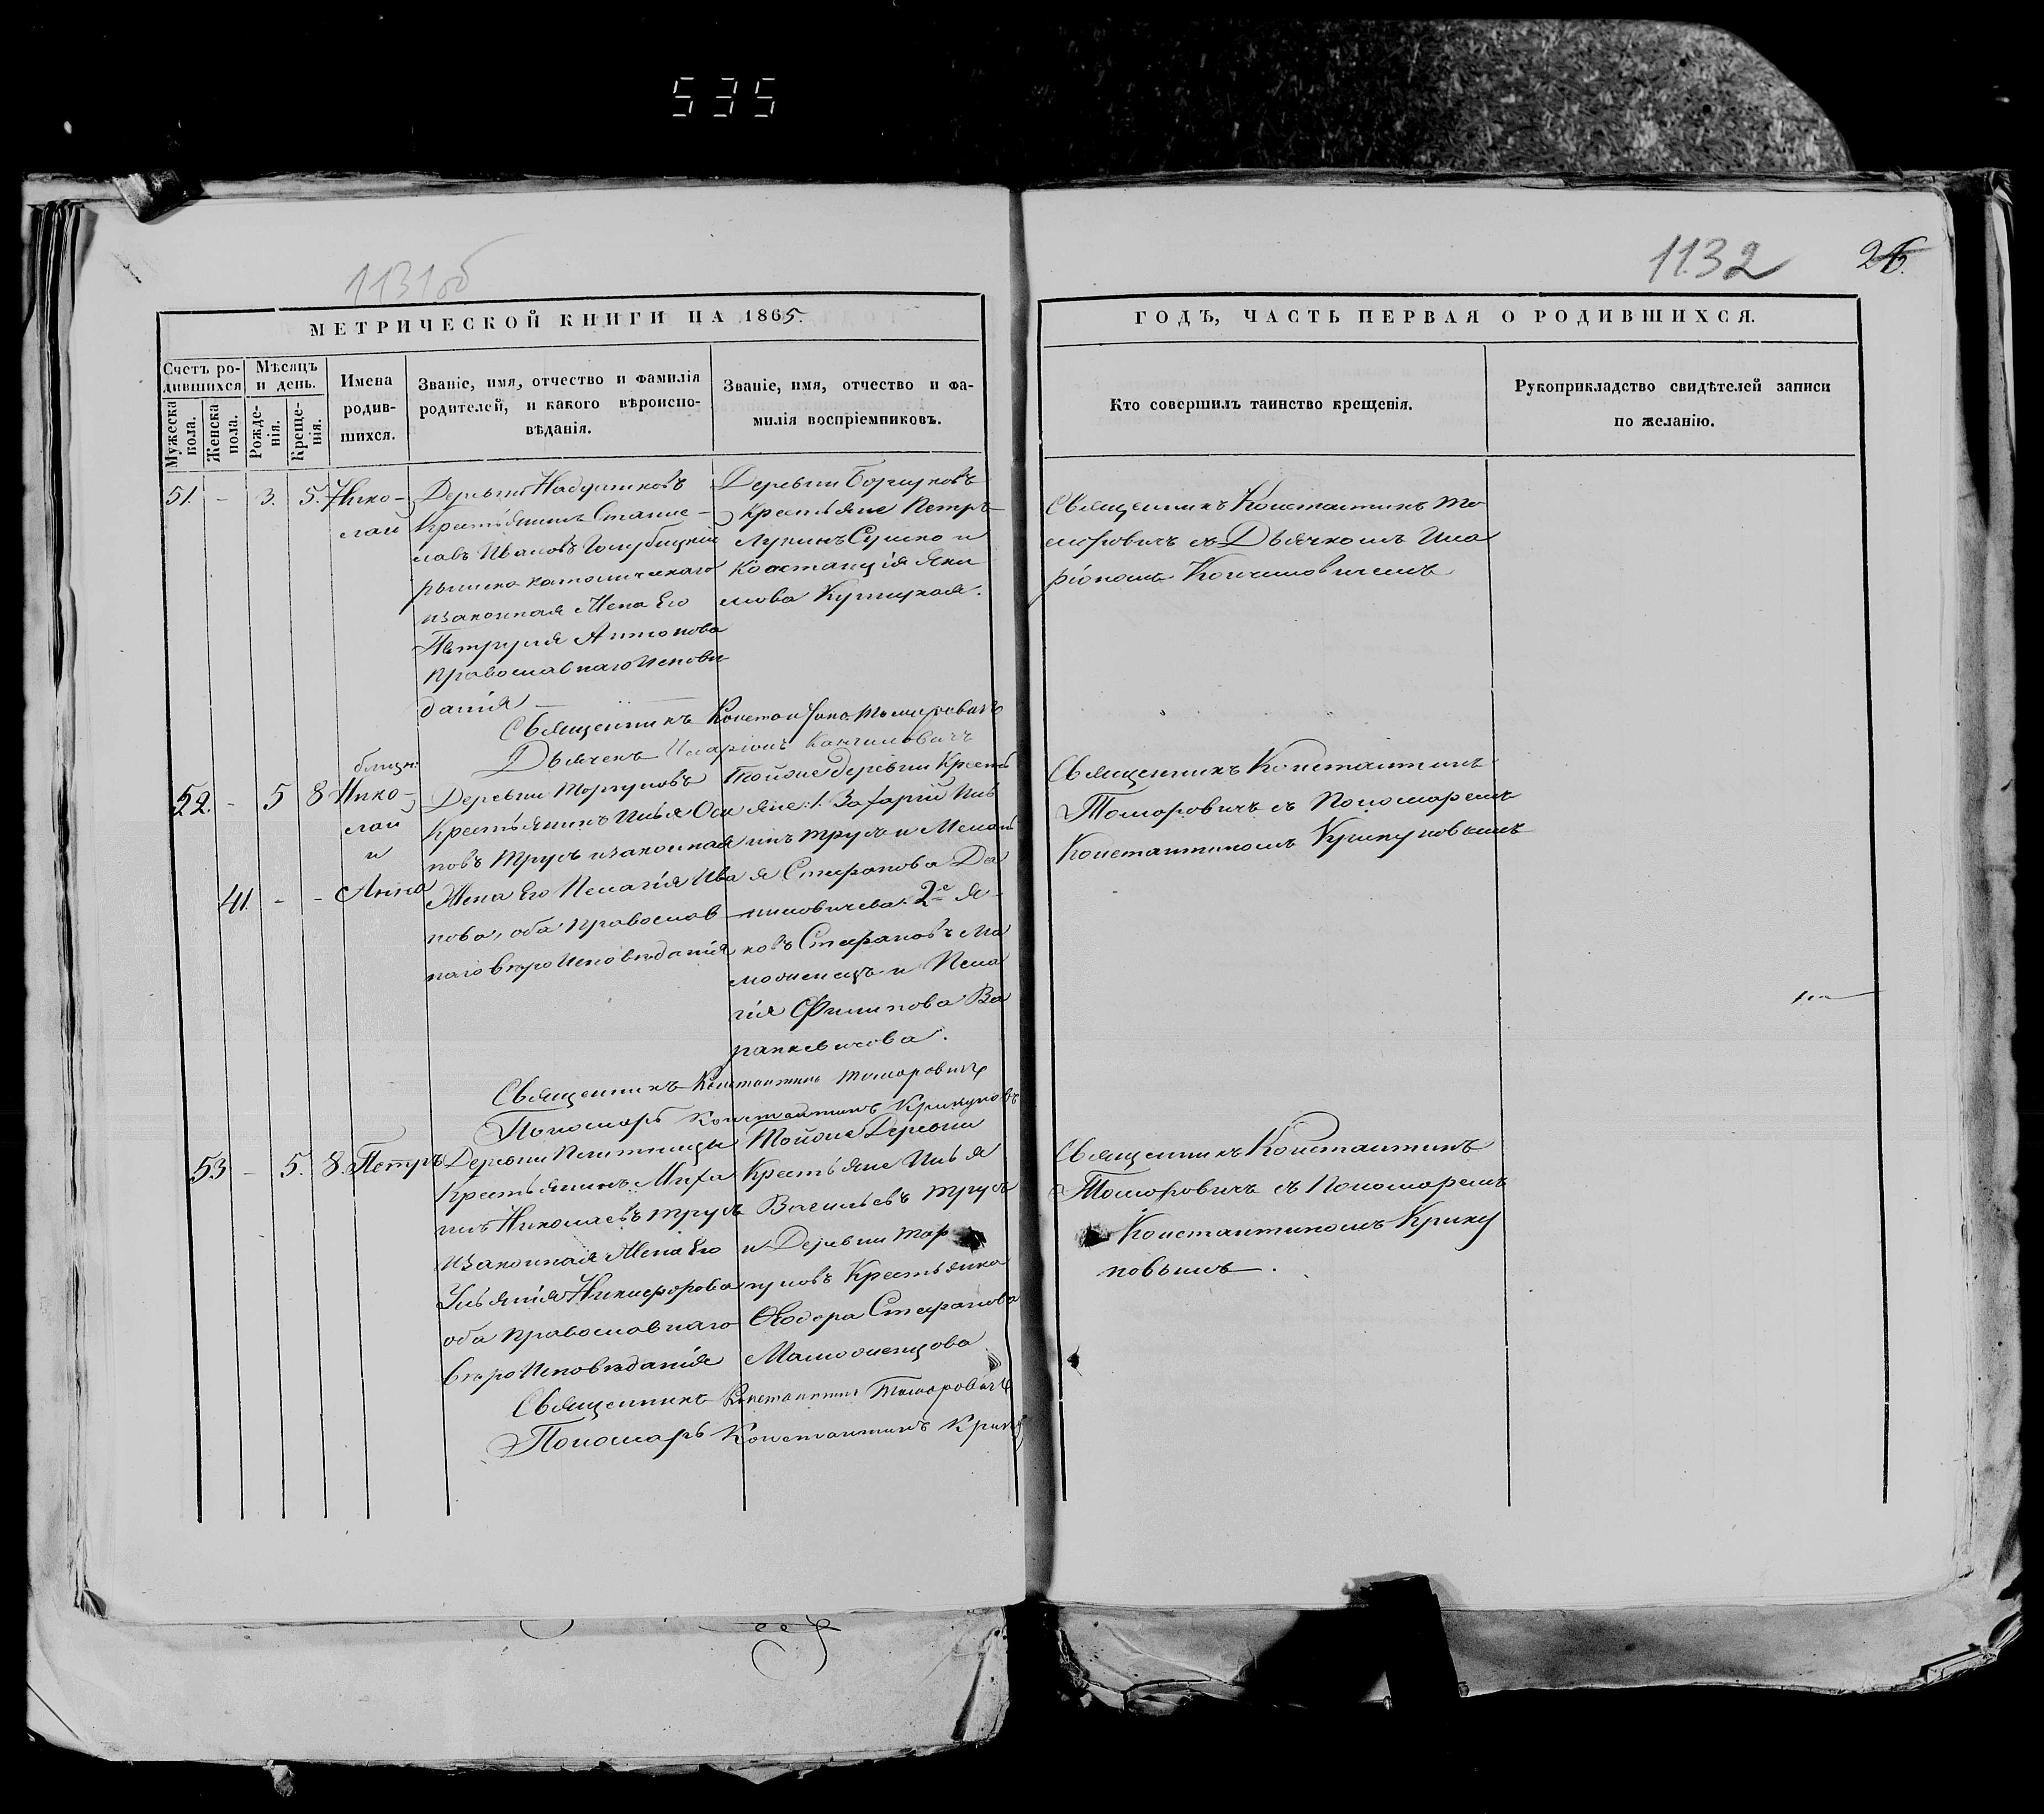 535
1131об
1132
26.
МЕТРИЧЕСКОЙ КНИГИ НА 1865.
ГОДЪ, ЧАСТЬ ПЕРВАЯ О РОДИВШИХСЯ.
Счетъ ро-
дившихся
Мужеска пола.
Женска пола.
Мѣсяцъ
и день.
Рожде-
нія.
Креще-
нія.
Имена
родив-
шихся.
Званіе, имя, отчество и фамилія
родителей, и какого вѣроиспо-
вѣданія.
Званіе, имя, отчество и фа-
милія воспріемниковъ.
Кто совершилъ таинство крещенія.
Рукоприкладство свидѣтелей записи
по желанію.
51. - 3. 5. Нико-
лай
Деревни
Крестьянинъ Станис-
лавъ Ивановъ Голубицкій
римско католическаго
изаконная Жена Его
Антонова
православнаго Испове
данія
Деревни
Крестьяне Петръ
Сушко и
Констанція Яки
мова
Священникъ Константинъ То
маровичъ съ Дьячкомъ Ила
ріономъ Кончиловичемъ
Священникъ Константинъ Томаровичъ
Дьячекъ Иларіонъ Кончиловичъ
52. - 5 8 близн:
Нико-
лай
и
41. - - Анна
Деревни Торгуновъ
Крестьянинъ Илья Оси
повъ Трусъ изаконная
Жена Его Пелагія Ива
нова, оба православ
наго вѣроИсповѣданія
Тойже деревни Кресть
яне: 1. Захарій Иль
инъ Трусъ и Мелань
я Стефанова Да
ниловичева. 2е Я
ковъ Стефановъ Ма
моненцъ и Пела
гія Филипова Ва
ранкевичова.
Священникъ Константинъ
Томаровичъ съ Пономаремъ
Константиномъ Крикуновымъ
Священникъ Константинъ Томаровичъ
Пономарь Константинъ Крикуновъ
53 - 5. 8. Петръ
Деревни Плитницы
Крестьянинъ Миха
илъ Николаевъ Трусъ
изаконная Жена Его
Ульянія Никифорова
оба православнаго
вѣроИсповѣданія
Тойже Деревни
Крестьяне Илья
Васильевъ Трусъ
и Деревни Тор
гуновъ Крестьянка
Ѳеодора Стефанова
Мамоненцова
Священникъ Константинъ
Томаровичъ съ Пономаремъ
Константиномъ Крику
новымъ.
Священникъ Константинъ Томаровичъ
Пономарь Константинъ Крику